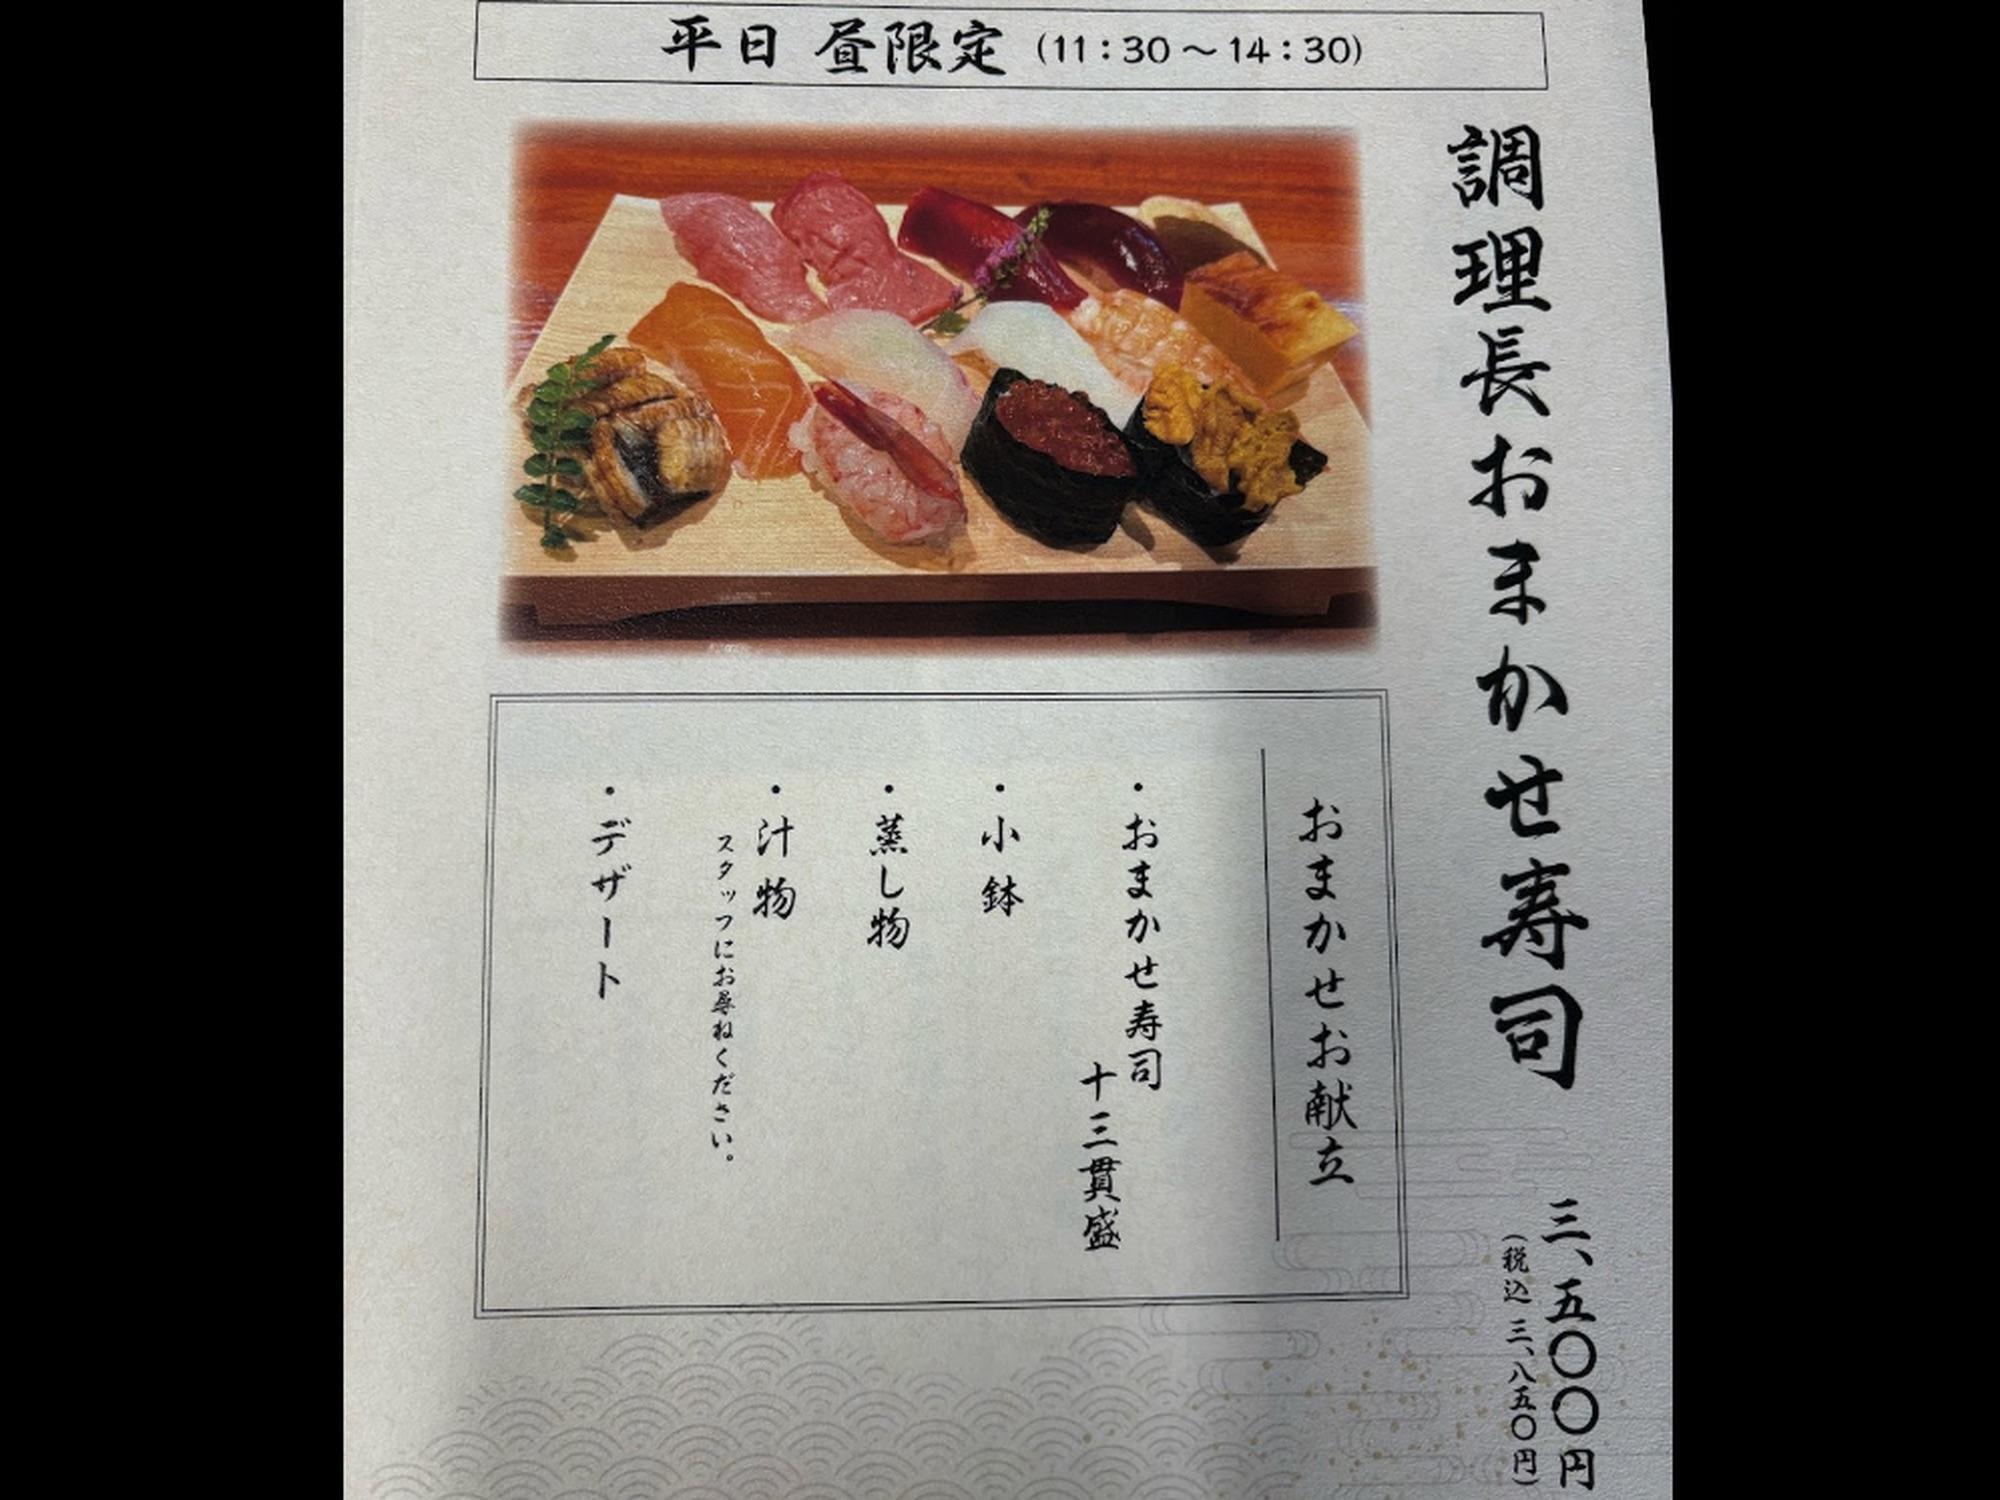 平日 昼限定 (11:30～14:30)
調理長おまかせ寿司
三、五〇〇円
(税込 三、八五〇円)
おまかせお献立
・おまかせ寿司
十三貫盛
・小鉢
・蒸し物
・汁物
スタッフにお尋ねください。
・デザート